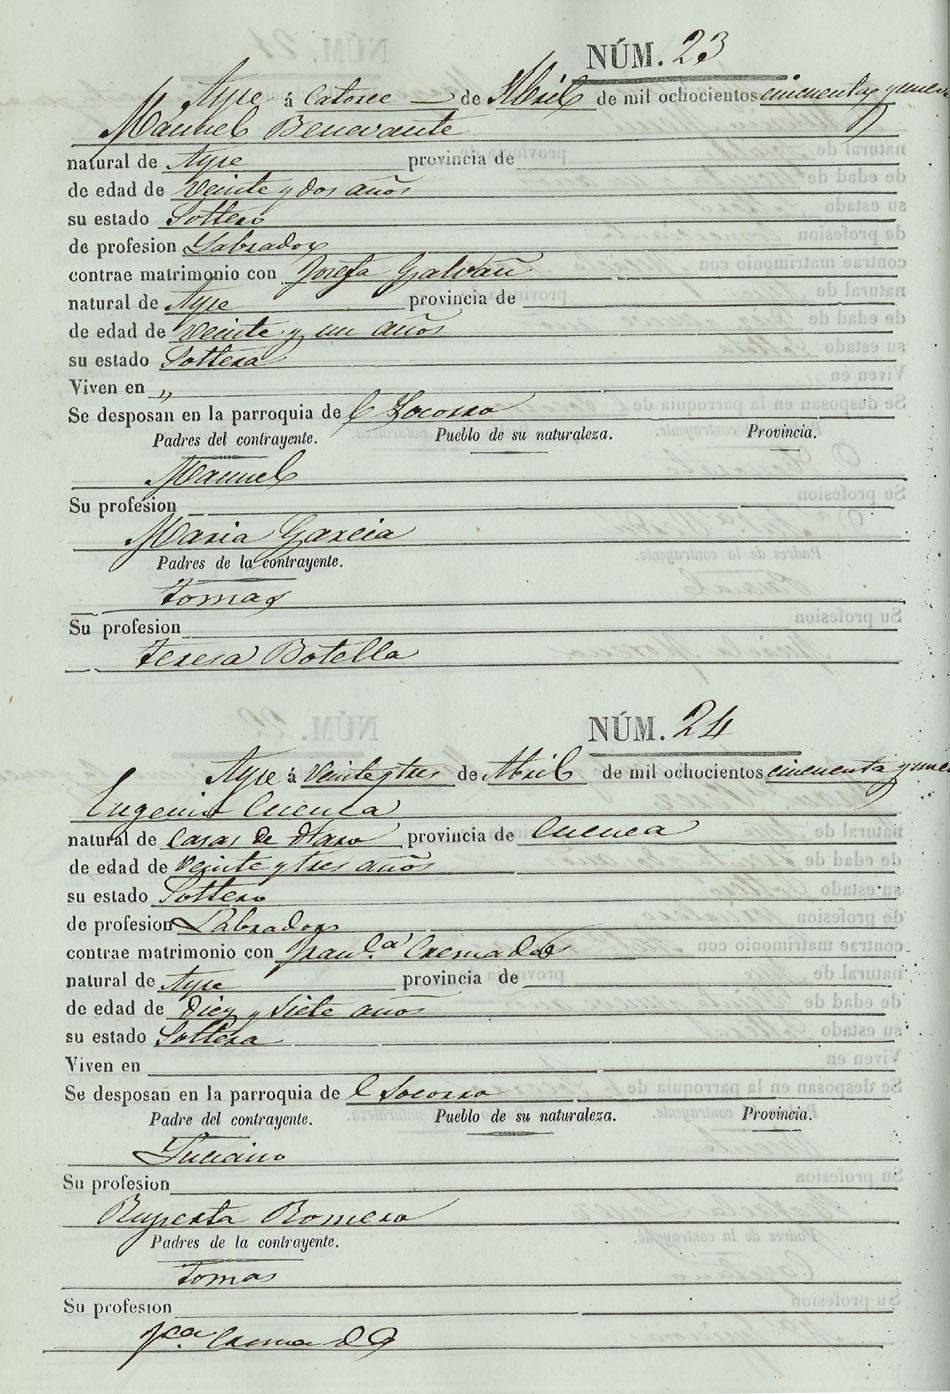 NÚM. 23
Aspe á Catorce de Abril de mil ochocientos cincuenta y nueve
Manuel Benavante
natural de Aspe provincia de
de edad de Veinte y dos años
su estado Soltero
de profesion Labrador
contrae matrimonio con Josefa Galvañ
natural de Aspe provincia de
de edad de Veinte y un años
su estado Soltera
Viven en „
Se desposan en la parroquia de l Socorro
Padres del contrayente. Pueblo de su naturaleza. Provincia.
Manuel
Su profesion
Maria Garcia
Padres de la contrayente.
Tomas
Su profesion
Teresa Botella
NÚM. 24
Aspe á Veinte y tres de Abril de mil ochocientos cincuenta y nueve
Eugenio Cuenca
natural de Casas de Haro provincia de Cuenca
de edad de Veinte y tres años
su estado Soltero
de profesion Labrador
contrae matrimonio con Fran.ca Cremades
natural de Aspe provincia de
de edad de Diez y Siete años
su estado Soltera
Viven en
Se desposan en la parroquia de l Socorro
Padre del contrayente. Pueblo de su naturaleza. Provincia.
Luciano
Su profesion
Ruperta Romero
Padres de la contrayente.
Tomas
Su profesion
Fca Cremades